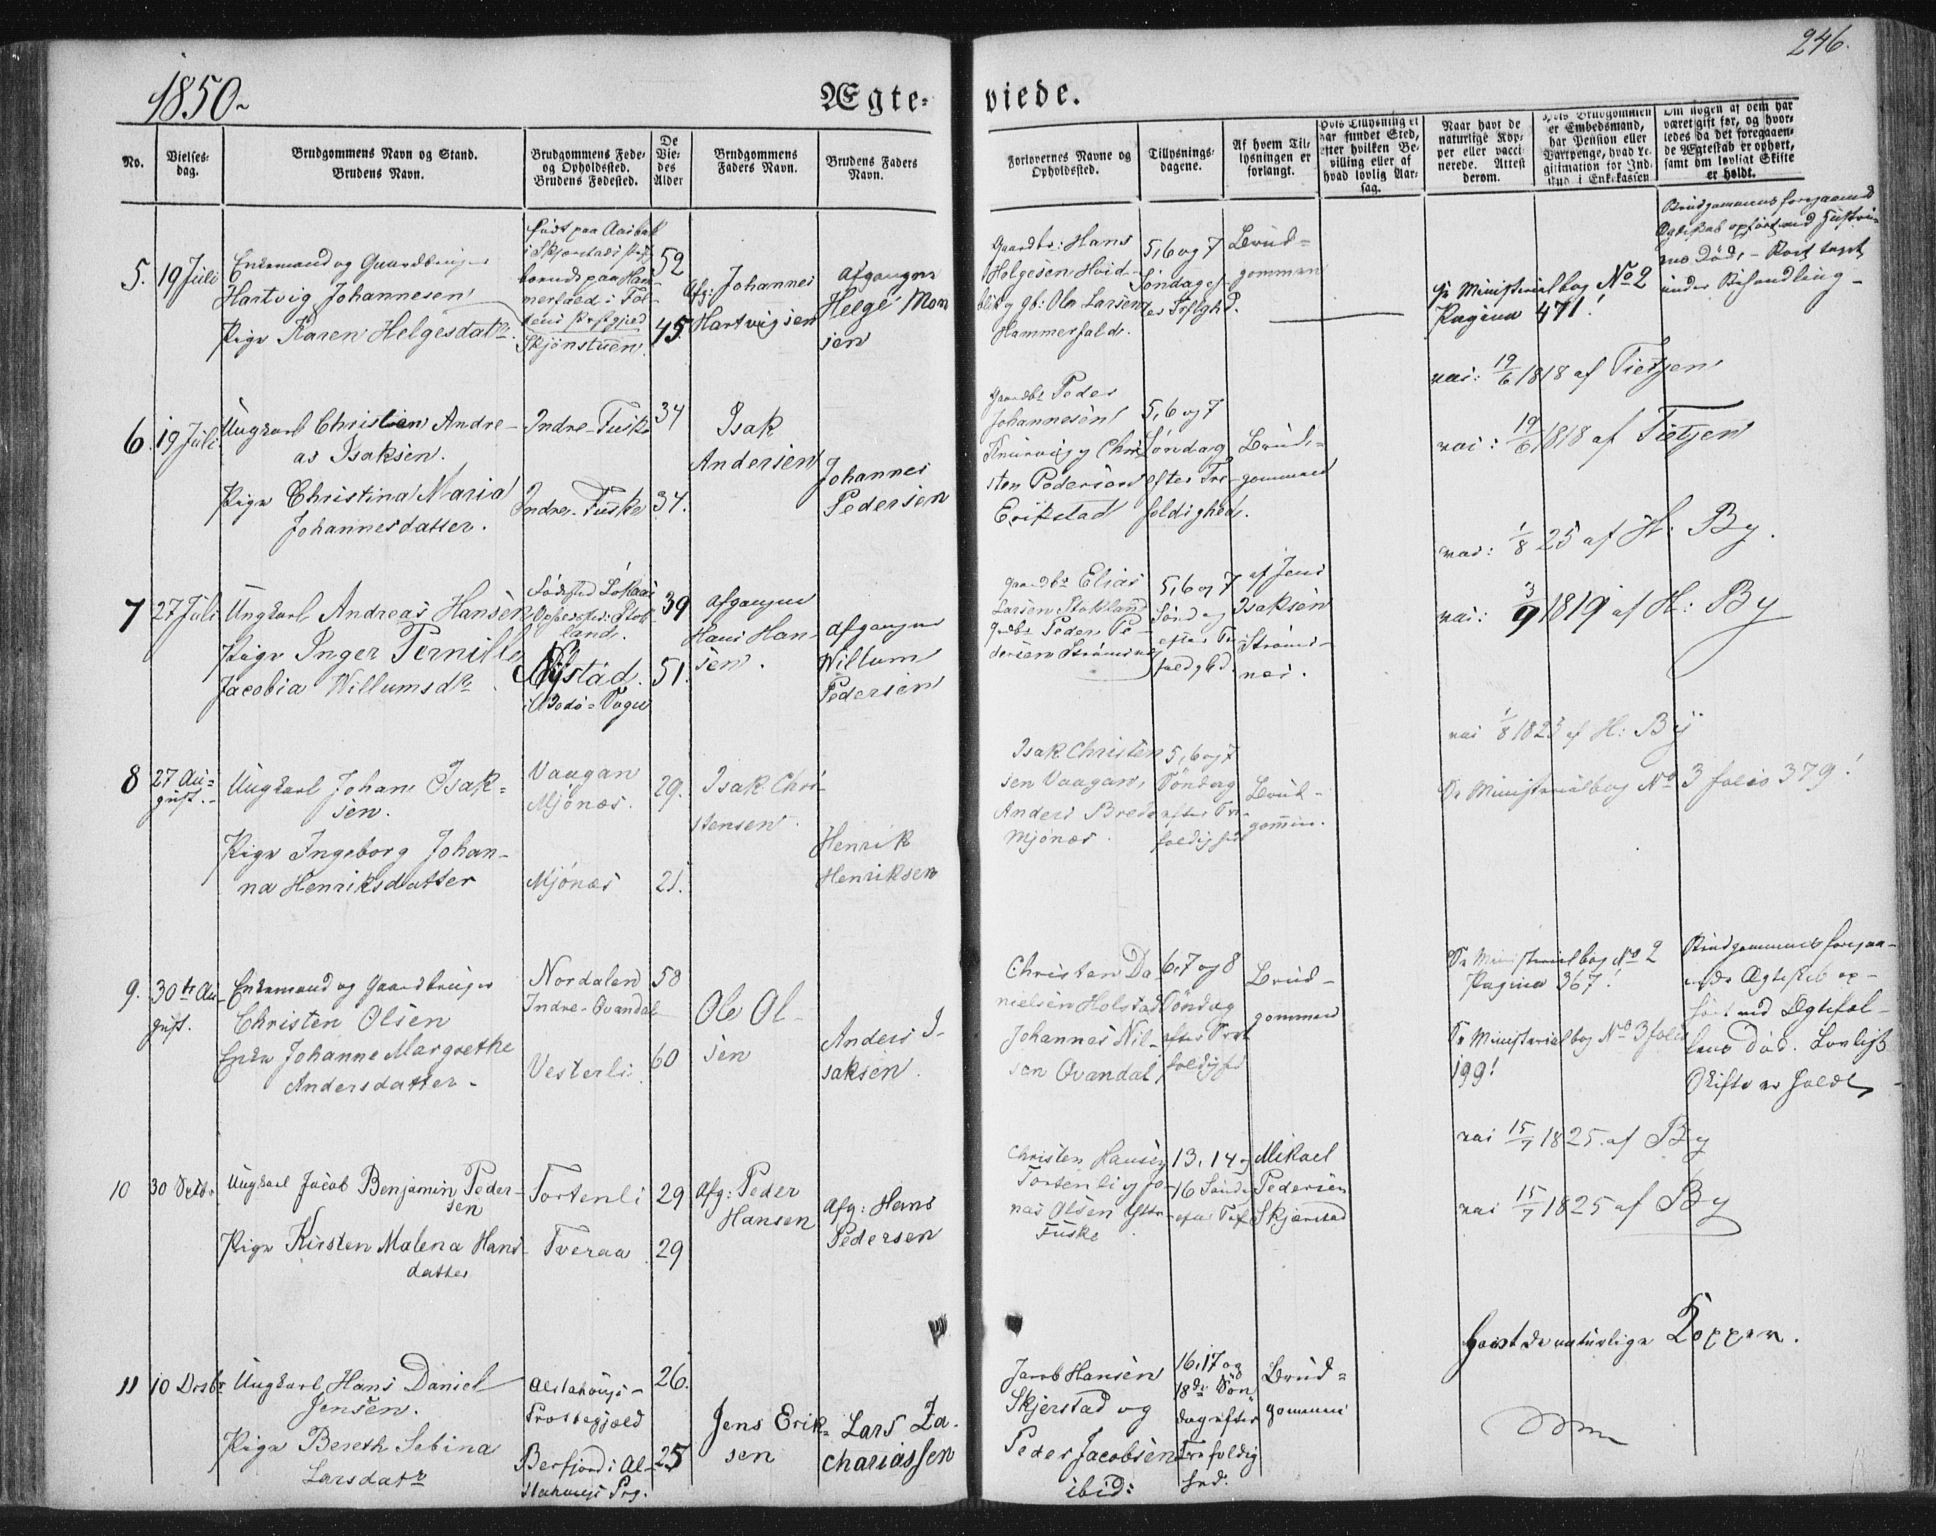 246.
1850
Ægte-
viede.
No.
Vielses-
dag.
Brudgommens Navn og Stand.
Brudens Navn.
Brudgommens Føde-
og Opholdssted.
Brudens Fødested.
De
Vie-
des
Alder
Brudgommens
Faders Navn.
Brudens Faders
Navn.
Forlovernes Navne og
Opholdssted.
Tillysnings-
dagene.
Af hvem Til-
lysningen er
forlangt.
Hvis Tillysning ei
har fundet Sted,
efter hvilken Be-
villing eller af
hvad lovlig Aar-
sag.
Naar havt de
naturlige Kop-
per eller vacci-
nerede. Attest
derom.
Hvis Brudgommen
er Embedsmand,
har Pension eller
Vartpenge, hvad Le-
gitimation for Ind-
skud i Enkekassen
Om nogen af dem har
været gift før, og hvor-
ledes da det foregaaen-
de Ægteskab er ophørt,
samt om lovligt Skifte
er holdt.
5. 19 Juli
Enkemand og Gaardbruger
Hartvig Johannesen
Pige Karen Helgesdatr.
Født paa
i Skjerstads
boende paa Ham-
merfald i Fol-
dens Præstgjed
Skjønstuen.
52
45.
Afg: Johannes
Hartvigsen
Afgangne
Helge Mon
sen
Gaardbr: Hans
Helgesen
Ole Larsen
Hammerfald.
5, 6 og 7
Søndag ef-
ter
Brud-
gommen
Se Ministerialbog No 2
Pagina 471!
vac: 19/6 1818 af Tietjen
Brudgommens foregaaende
Ægteskab ophørt ved Hustru-
ens Død,
under Behandling
6. 19 Juli
Ungkarl Christien Andre-
as Isaksen.
Pige Christina Maria
Johannesdatter.
Indre-Fuske
Indre-Fuske
34
34.
Isak
Andersen
Johannes
Pedersen
Gaardbr Peder
Johannesen
Chri-
sten Pedersen
Erikstad
5, 6 og 7
Søndag
efter Tre-
foldighed.
Brud-
gommen
vac: 19/6 1818 af Tietjen
vac: 1/8 25 af H: By.
7 27 Juli
Ungkarl Andreas Hansen
Pige Inger Pernille
Jacobia Willumsdr.
Fødested Løkaas
Opholdsted: Stok-
land.
Nystad.
i Bodø-Sogn
39
51.
Afgangne
Hans Han-
sen.
Afgangne
Willum
Pedersen
Gaardbr Elias
Larsen Stokland
Peder Pe-
dersen Strømsnes
5, 6 og 7
Søndag
efter Tre
foldghd.
af Jens
Isaksen
Strøms-
nes.
vac: 3/9 1819 af H: By
vac 1/8 1825 af H: By
8 27 Au-
gust.
Ungkarl Johan Isak-
sen.
Pige Ingeborg Johan-
na Henriksdatter
Vaagan
Mjønæs.
Mjønæs
29.
21.
Isak Chri-
stensen.
Henrik
Henriksen
Isak Christen
sen Vaagan,
Anders
Mjønæs.
5, 6 og 7
Søndag
efter Tre-
foldighed
Brud-
gommen.
Se Ministerialbog No 3 folio 379!
9. 30te Au-
gust.
Enkemand og Gaardbruger
Christen Olsen
Enke Johanne Margrethe
Andersdatter-
Nordalen
Indre-Qvandal
Vesterli
58
60
Ole Ol-
sen
Anders I-
saksen.
Christen Da
nielsen Holstad
Johannes Nil-
sen Qvandal
6, 7 og 8
Søndag
efter Tre
foldighd
Brud-
gommen
Se Ministerialbog No 2
Pagina 367!
Se Ministerialbog No 3 folio
199!
Brudgommens foregaa-
ende Ægteskab op-
hørt ved Ægtefæl-
lens Død. Lovligt
Skifte er holdt
10 30 Octbr
Ungkarl Jacob Benjamin Peder-
sen
Pige Kirsten Malena Hans-
datter
Tortenli
Tveraa
29
29
Afg: Peder
Hansen
Afg: Hans
Pedersen
Christen Hansen
Tortenli og Jo-
nas Olsen Yttre
Fuske
13, 14 og
16 Søndg
efter Tref
Mikael
Pedersen
Skjerstad
vac 15/7 1825 af By
vac 15/7 1825 af By
11 10 Decbr
Ungkarl Hans Daniel
Jensen.
Pige Bereth Sebina
Larsdatr
Alstahougs-
Præstegjeld
Berfjord i Al-
stahougs Prg.
26.
25
Jens Erik-
sen
Lars Za-
chariassen
Jacob Hansen
Skjerstad og
Peder Jacobsen
ibid:
16, 17 og
18de Søn
dag efter
Trefoldig
hed.
Brud-
gommen
havt de naturlige Kopper.